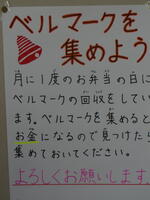 ベルマークを
集めよう
月に1度のお弁当の日に
ベルマークの回収をしてい
ます。ベルマークを集めると
お金になるので見つけたら
集めておいてください。
よろしくお願いします